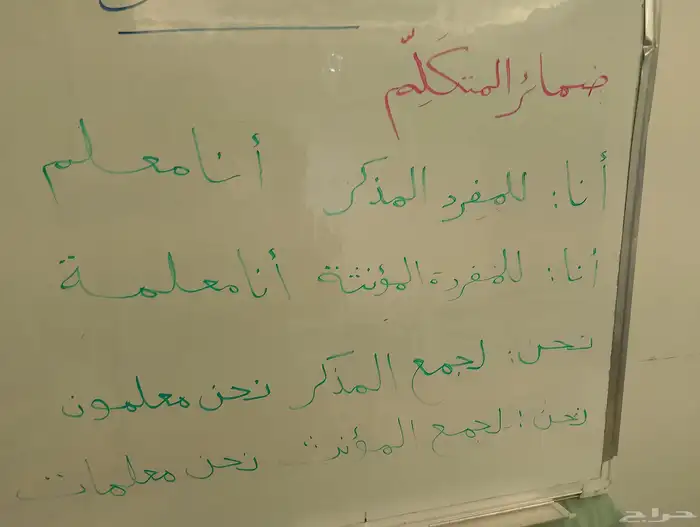 ضمائر المتكَلِّم
أنا: للمفرد المذكر أنا معلم
أنا: للمفردة المؤنثة أنا معلمة
نحن: لجمع المذكر نحن معلمون
نحن: لجمع المؤنث نحن معلمات
حراج